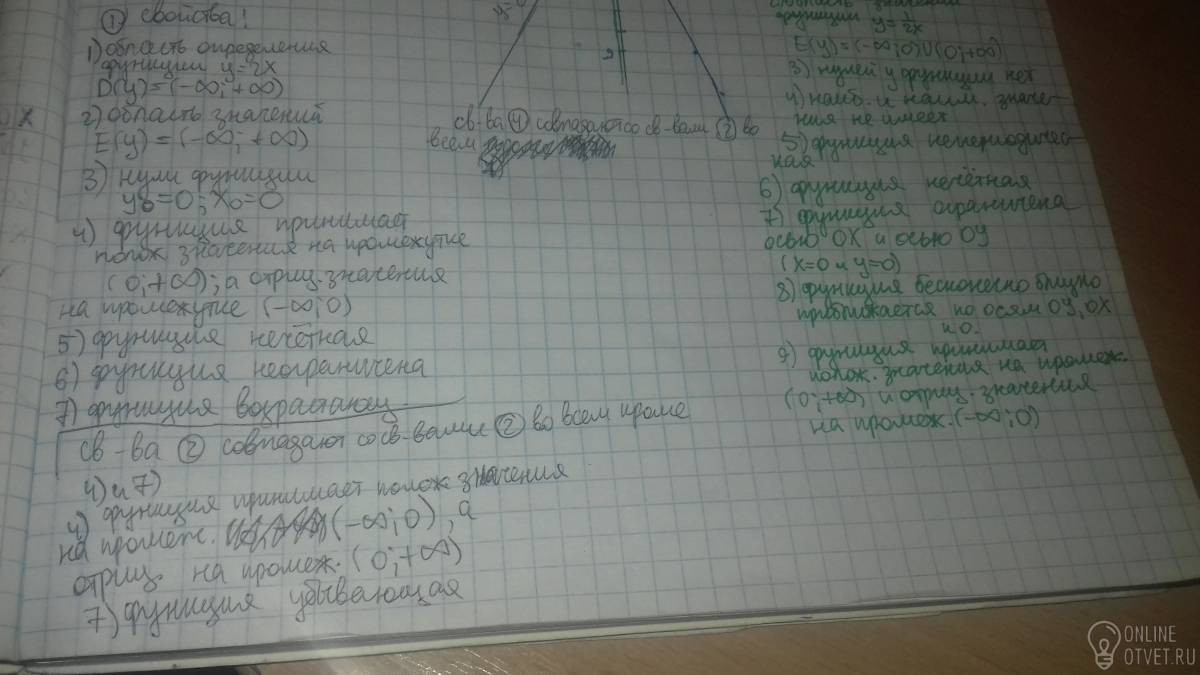 ① свойства!
1) область определения
функции y=2x
D(y)=(-∞;+∞)
2) область значений
E(y)=(-∞;+∞)
3) нули функции
y₀=0; x₀=0
4) функция принимает
полож значения на промежутке
(0;+∞); а отриц. значения
на промежутке (-∞;0)
5) функция нечётная
6) функция неограничена
7) функция возрастающ.
св-ва ② совпадают со св-вами ② во всем кроме
4) и 7)
4) функция принимает полож значения
на промеж. (-∞;0), а
отриц. на промеж. (0;+∞)
7) функция убывающая
x
y=
2
св-ва ④ совпадают со св-вами ② во
всем
функции y=1/2x
E(y)=(-∞;0)U(0;+∞)
3) нулей у функции нет
4) наиб. и наим. значе-
ния не имеет
5) функция непериодичес-
кая
6) функция нечётная
7) функция ограничена
осью OX и осью OY
(x=0 и y=0)
8) функция бесконечно близко
приближается по осям OY, OX
к 0.
9) функция принимает
полож. значения на промеж.
(0;+∞) и отриц. значения
на промеж. (-∞;0)
ONLINE
OTVET.RU